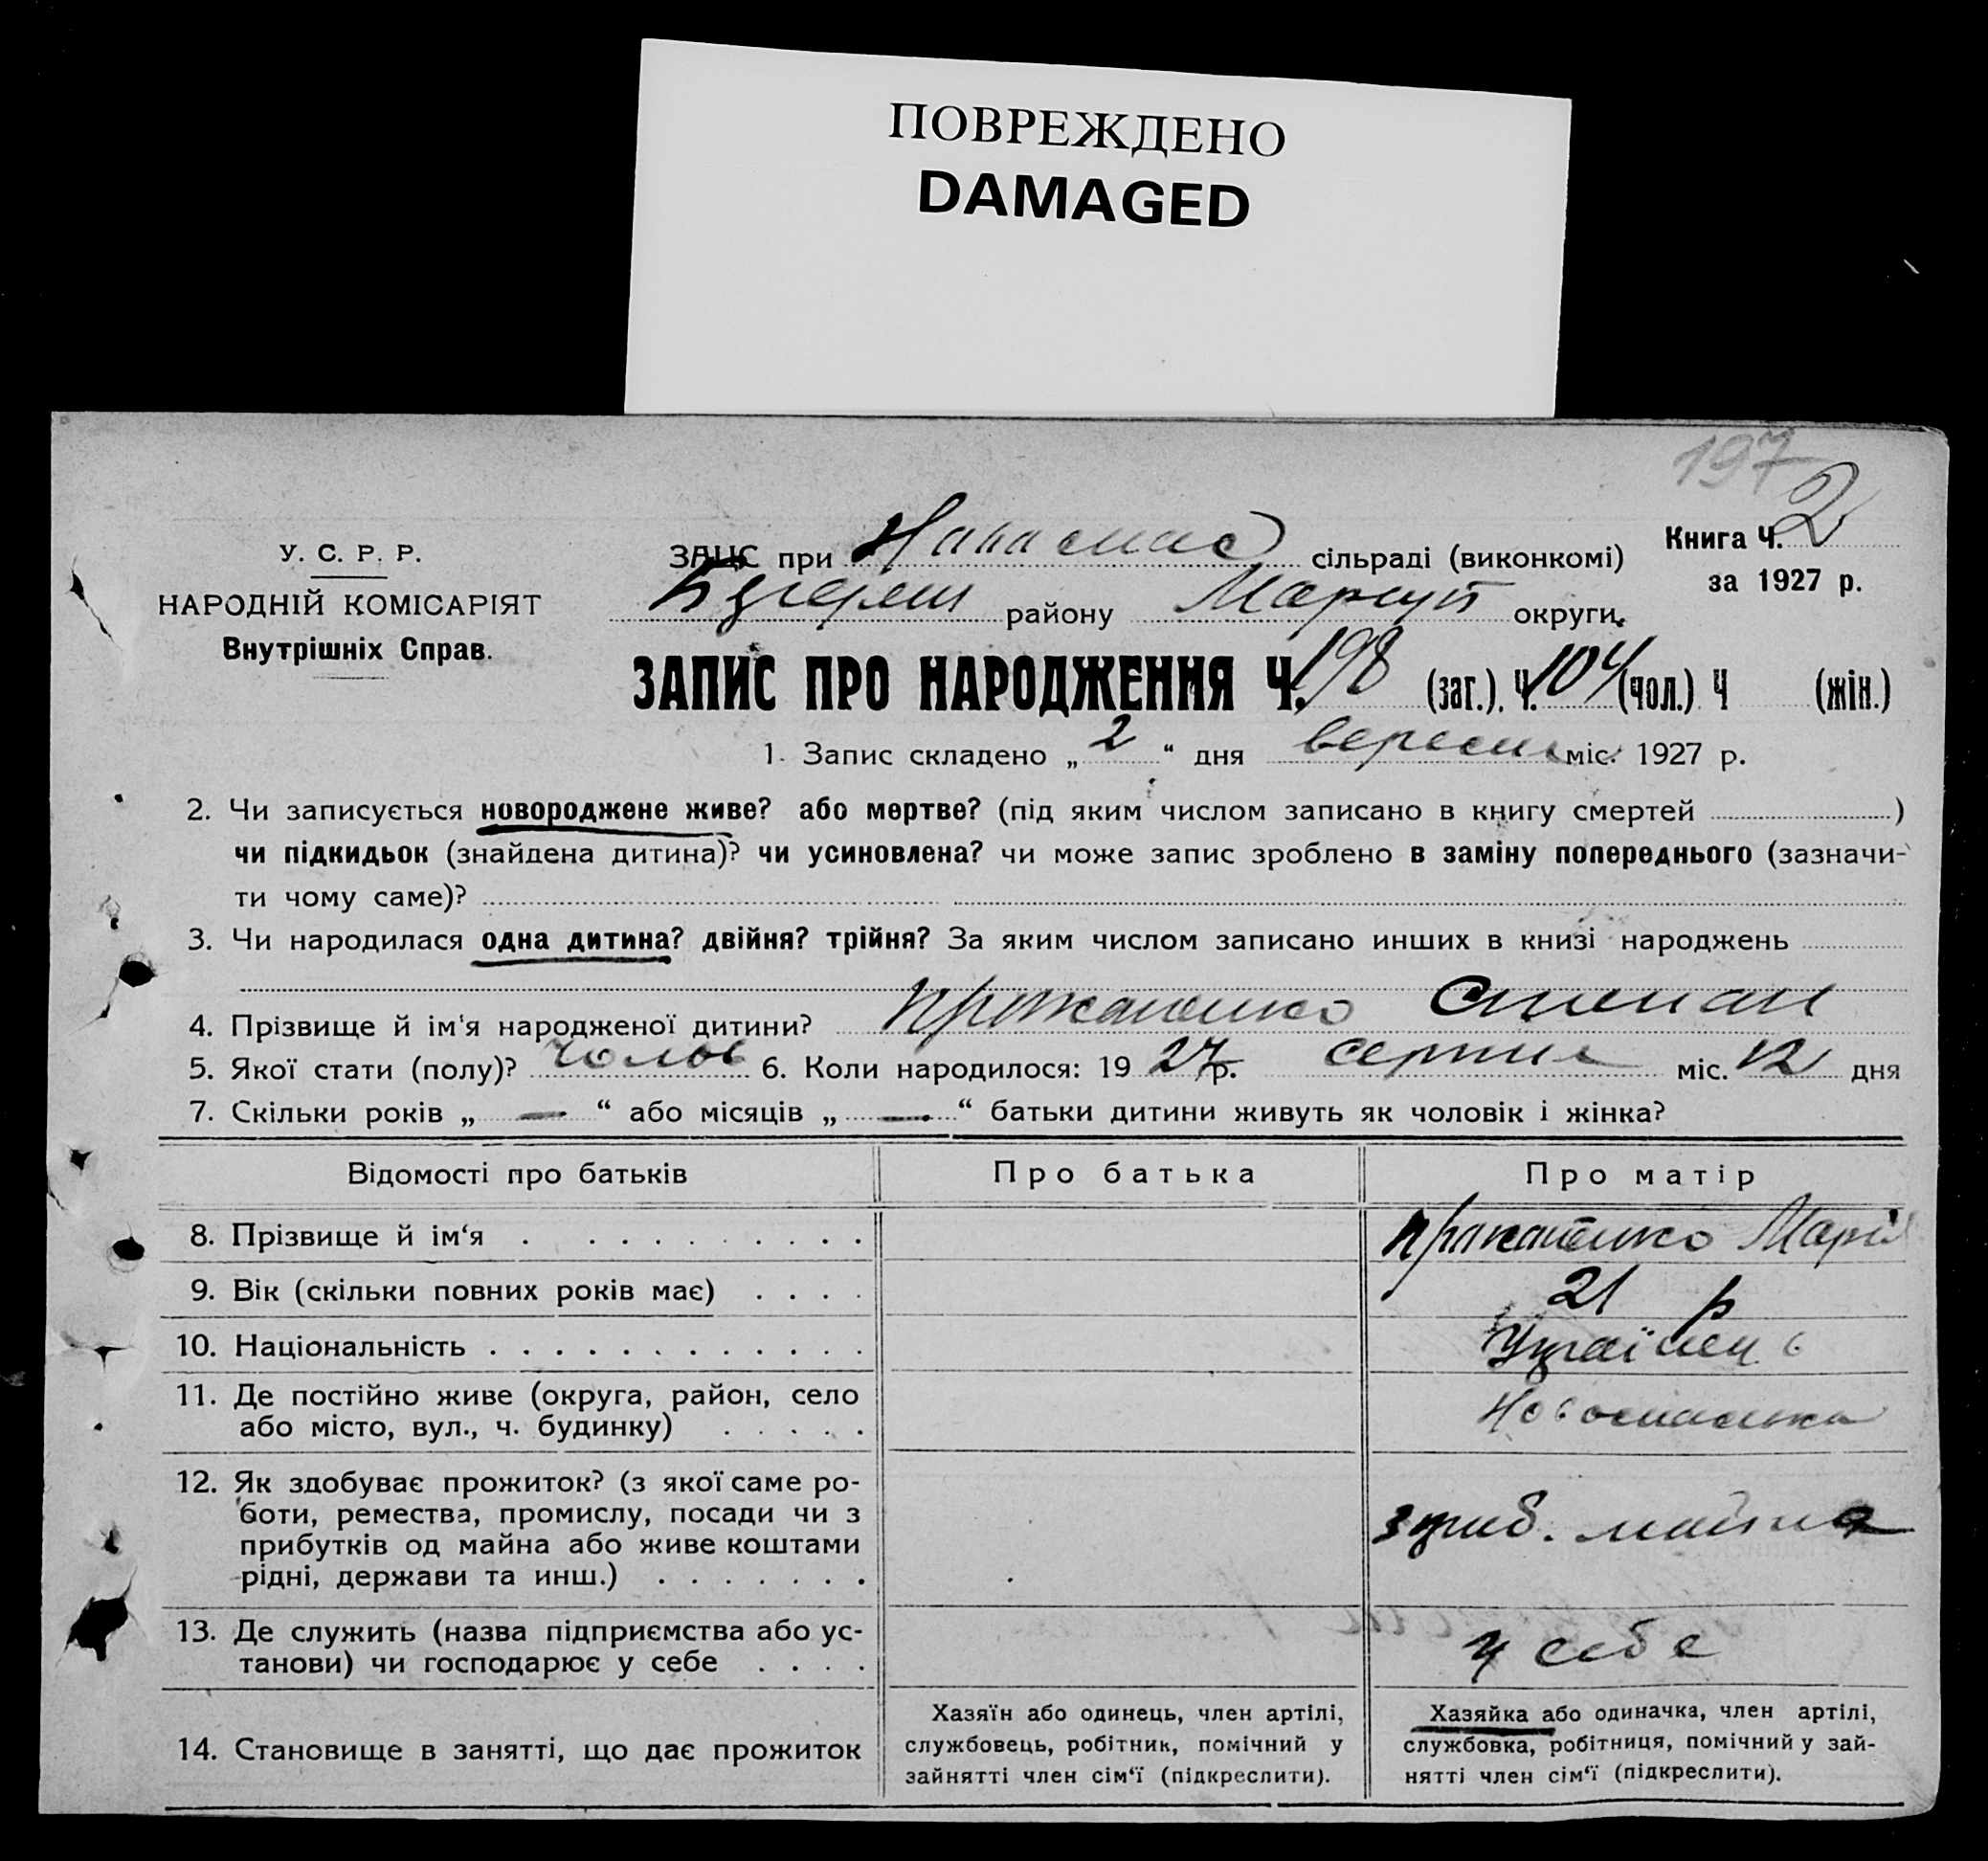 ПОВРЕЖДЕНО
DAMAGED
197
Книга Ч. 2
за 1927 р.
У. С. Р. Р.
НАРОДНІЙ КОМІСАРІЯТ
Внутрішніх Справ.
ЗАЦС при сільраді (виконкомі)
району Маріуп округи
ЗАПИС ПРО НАРОДЖЕННЯ Ч. 198 (заг.). Ч. 104 (чол.) Ч (жін.)
1. Запис складено „ 2 “ дня вересня міс. 1927 р.
2. Чи записується новороджене живе? або мертве? (під яким числом записано в книгу смертей )
чи підкидьок (знайдена дитина)? чи усиновлена? чи може запис зроблено в заміну попереднього (зазначи-
ти чому саме)?
3. Чи народилася одна дитина? двійня? трійня? За яким числом записано инших в книзі народжень
4. Прізвище й ім'я народженої дитини? Степан
5. Якої стати (полу)? чолов 6. Коли народилося: 19 27 р. серпня міс. 12 дня
7. Скільки років „ — “ або місяців „ — “ батьки дитини живуть як чоловік і жінка?
Відомості про батьків Про батька Про матір
8. Прізвище й ім‘я Марія
9. Вік (скільки повних років має) 21 р
10. Національність Україн
11. Де постійно живе (округа, район, село
або місто, вул., ч. будинку)
12. Як здобуває прожиток? (з якої саме ро-
боти, ремества, промислу, посади чи з
прибутків од майна або живе коштами
рідні, держави та инш.) з приб. майна
13. Де служить (назва підприємства або ус-
танови) чи господарює у себе у себе
14. Становище в занятті, що дає прожиток
Хазяїн або одинець, член артілі,
службовець, робітник, помічний у
зайнятті член сім‘ї (підкреслити).
Хазяйка або одиначка, член артілі,
службовка, робітниця, помічний у зай-
нятті член сім‘ї (підкреслити).